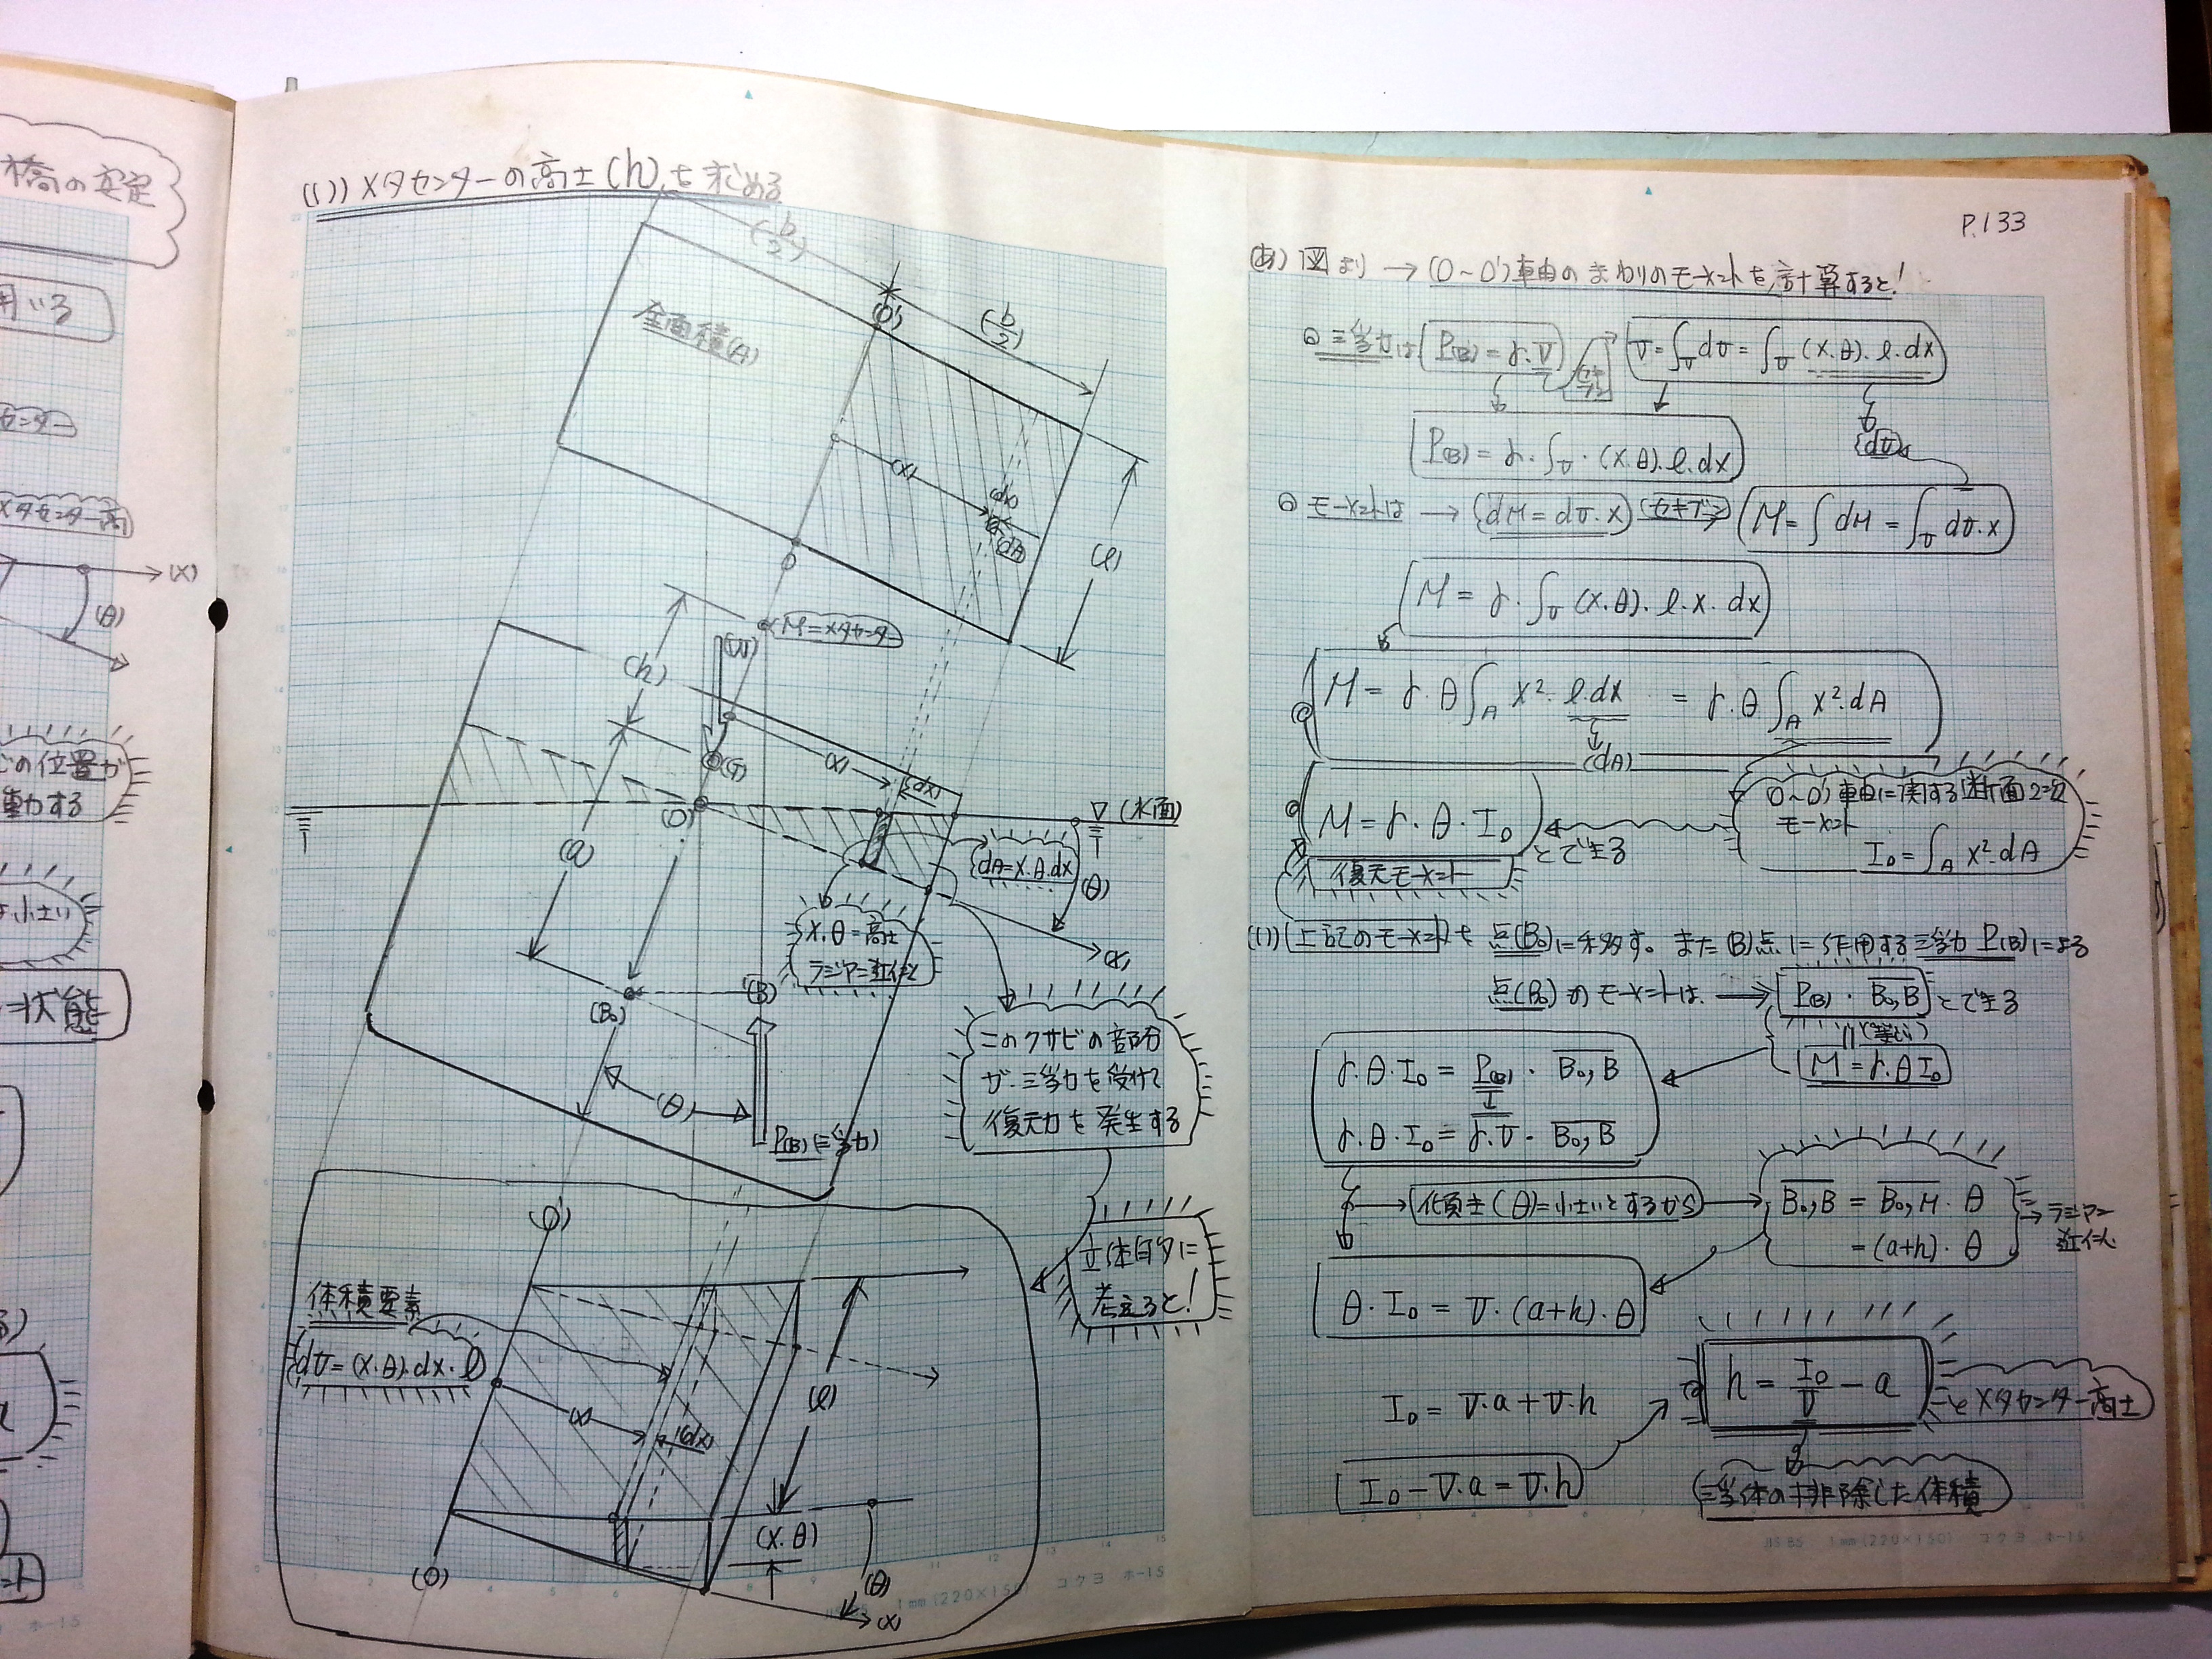 橋の安定
用いる
センター
メタセンター高
(X)
(θ)
の位置が
動する
小さい
状態
(1)) メタセンターの高さ(h)を求める
(b/2)
(b/2)
(O')
全面積(A)
(x)
(dx)
(dA)
(l)
O
M=メタセンター
(W)
(h)
(G)
(x)
(dx)
(O)
▽ (水面)
(a)
dA=x.θ.dx
(θ)
x.θ=高さ
ラジアン近似
(x)
(B₀)
(B)
このクサビの部分
が浮力を受けて
復元力を発生する
(θ)
P(B)(浮力)
立体的に
考えると!
(O')
体積要素
dV=(x.θ).dx.l
(x)
(dx)
(l)
(x.θ)
(O)
(θ)
(x)
JIS B5 1mm(220×150) コクヨ ホ-15
P.133
(あ) 図より → (O~O')軸のまわりのモーメントを計算すると!
浮力は P(B)=γ.V
V=∫v dV=∫v (x.θ).l.dx
(dV)
P(B)=γ.∫v.(x.θ).l.dx
モーメントは → (dM=dV.x)
M=∫dM=∫v dV.x
M=γ.∫v (x.θ).l.x.dx
M=γ.θ∫A x².l.dx = γ.θ∫A x².dA
(dA)
M=γ.θ.I₀
とできる
(O~O')軸に関する断面2次
モーメント
I₀=∫A x².dA
復元モーメント
(い) 上記のモーメントを点(B₀)に移す。また(B)点に作用する浮力P(B)による
点(B₀)のモーメントは → P(B).B₀,B とできる
(等しい)
M=γ.θI₀
γ.θ.I₀=P(B).B₀,B
γ.θ.I₀=γ.V.B₀,B
傾き(θ)=小さいとするから
B₀,B=B₀,M.θ
=(a+h).θ
ラジアン
近似
θ.I₀=V.(a+h).θ
I₀=V.a+V.h
I₀-V.a=V.h
h=I₀/V-a
メタセンター高さ
浮体の排除した体積
JIS B5 1mm(220×150) コクヨ ホ-15